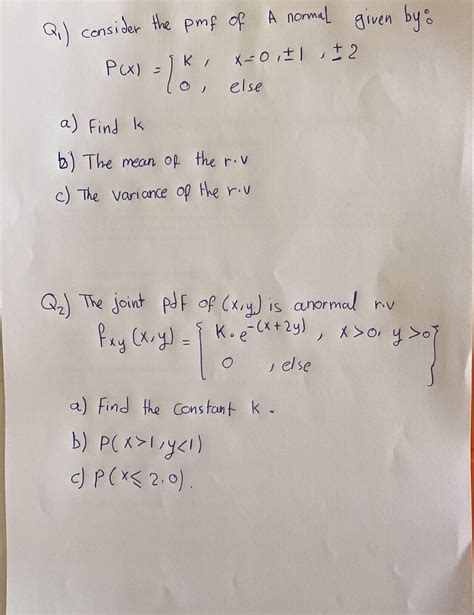 Q1) consider the pmf of A normal given by:
P(x) = { K, x=0, ±1, ±2
0, else
a) Find k
b) The mean of the r.v
c) The variance of the r.v
Q2) The joint pdf of (x,y) is anormal r.v
fxy (x,y) = { K.e^-(x+2y), x>0, y>0 }
0, else
a) Find the constant k.
b) P(x>1, y<1)
c) P(x⩽2.0).